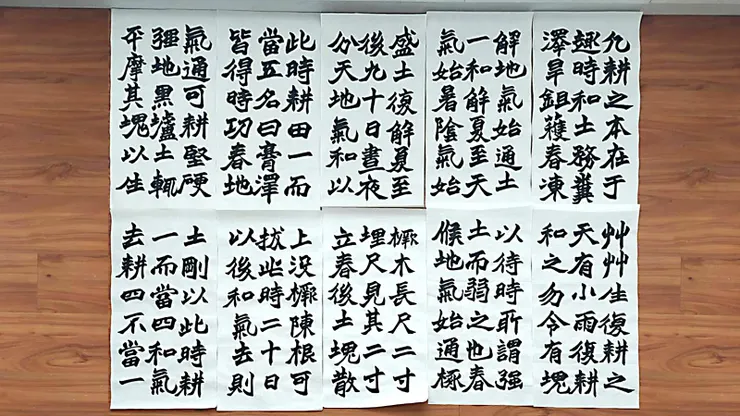 凡耕之本在于
趣時和土務糞
澤旱鉏穫春凍
解地氣始通土
一和解夏至天
氣始暑陰氣始
盛土復解夏至
後九十日晝夜
分天地氣和以
此時耕田一而
當五名曰膏澤
皆得時功春地
氣通可耕堅硬
强地黑壚土輒
平摩其塊以生
艸艸生復耕之
天有小雨復耕
和之勿令有塊
以待時所謂强
土而弱之也春
候地氣始通椓
橛木長尺二寸
埋尺見其二寸
立春後土塊散
上没橛陳根可
拔此時二十日
以後和氣去則
土剛以此時耕
一而當四和氣
去耕四不當一